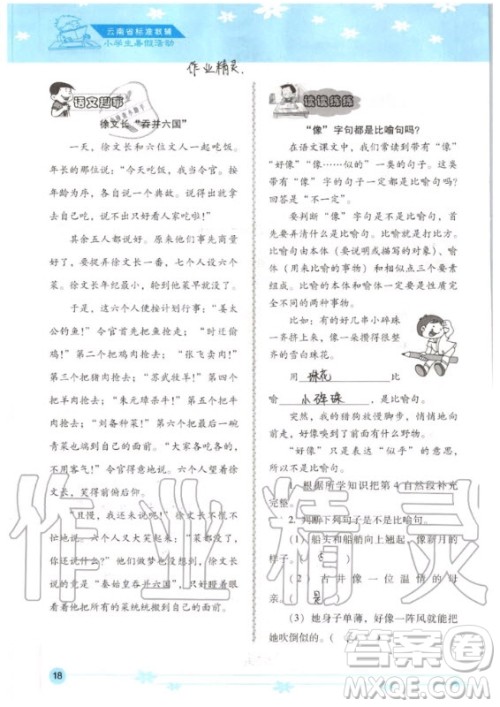 云南省标准教辅
小学生暑假活动
作业精灵.
语文趣事
徐文长“吞并六国”
一天，徐文长和六位文人一起吃饭。
年长的徐文长说：“今天吃饭，我当令官。
我们每个人各说一个典故。说对了就吃
菜，说不出来就只好看人家吃啦！”
其余五人都说好。原来他们事先商量
好了，要捉弄徐文长。七个人，设六个
菜。徐文长年纪最小，轮不到他了。
于是，这六个人便按计划行事：“姜太
公钓鱼！”令官首先把鱼抢去；“时迁偷
鸡！”第二个把鸡肉抢去；“张飞卖肉！”
第三个把猪肉抢去；“苏武牧羊！”第四
个把羊肉抢去；“朱元璋杀牛！”第五个
把牛肉抢去；“刘备种菜！”第六个把最后一碗
青菜也移到自己的面前。“大家各吃各的，
不用客气啦！”令官得意地对大家说。徐
文长，笑得前俯后仰。
“且慢，我还没有说呢！”徐文长大声
说。这六个人做梦也没想到，徐文长
说的竟是“秦始皇吞并六国”！他一边说，
一边把所有的菜统统端到自己面前。
18
读读练练
“像”字句都是比喻句吗？
在语文课文中，我们常读到带有“像”
“好像”“像……似的”一类的句子。这类
带有“像”字的句子一定都是比喻句吗？
回答是“不一定”。
要判断“像”字句是不是比喻句，首
先要弄清什么是比喻句。我们知道，比
喻句由本体（要说明或描写的对象）、喻
体（用来比喻的事物）和相似点三个要素
组成。比喻的本体和喻体一定要是性质完
全不同的两种事物。
比如：有的好几串小碎珠
一齐挤上来，像一朵攒得很整齐
的雪白珠花。
用 珠花 比
喻 小碎珠 。
突然，我的猎狗放慢脚步，悄悄地向
前走，好像嗅到了前面有什么野物。
“好像”只是表达“似乎”的意思，
所以不是比喻句。
1. 根据所学知识把第4自然段补充
完整。
2. 判断下列句子是不是比喻句。
（1）船头和船艄向上翘起，像新月的
样子。
（2）古井像一位温情的母
亲。 是
（3）她身子单薄，好像一阵风就能把
她吹倒似的。
作业精灵
答案圈
MXQE.COM